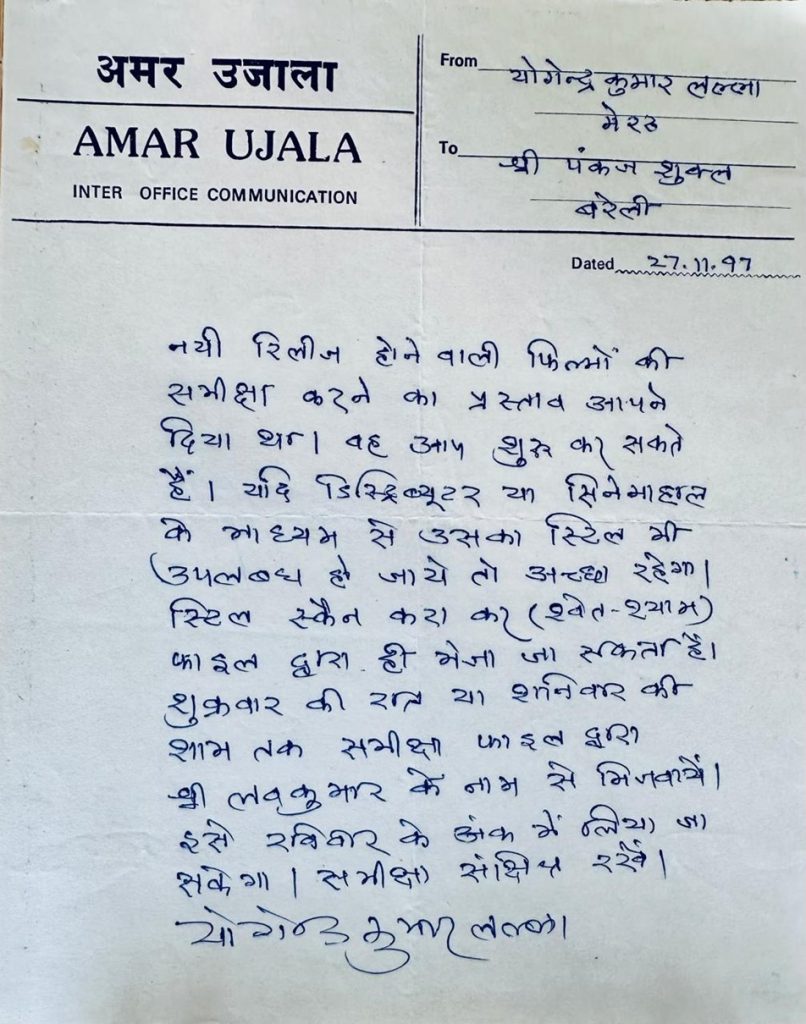 अमर उजाला
AMAR UJALA
INTER OFFICE COMMUNICATION
From योगेन्द्र कुमार लल्ला
मेरठ
To श्री पंकज शुक्ल
बरेली
Dated 27.11.97
नयी रिलीज होने वाली फिल्मों की
समीक्षा करने का प्रस्ताव आपने
दिया था। वह आप शुरू कर सकते
हैं। यदि डिस्ट्रिब्यूटर या सिनेमाहाल
के माध्यम से उसका स्टिल भी
उपलब्ध हो जाये तो अच्छा रहेगा।
स्टिल स्कैन करा कर (श्वेत-श्याम)
फाइल द्वारा ही भेजा जा सकता है।
शुक्रवार की रात या शनिवार की
शाम तक समीक्षा फाइल द्वारा
श्री लवकुमार के नाम से भिजवायें।
इसे रविवार के अंक में लिया जा
सकेगा। समीक्षा संक्षिप्त रखें।
योगेन्द्र कुमार लल्ला